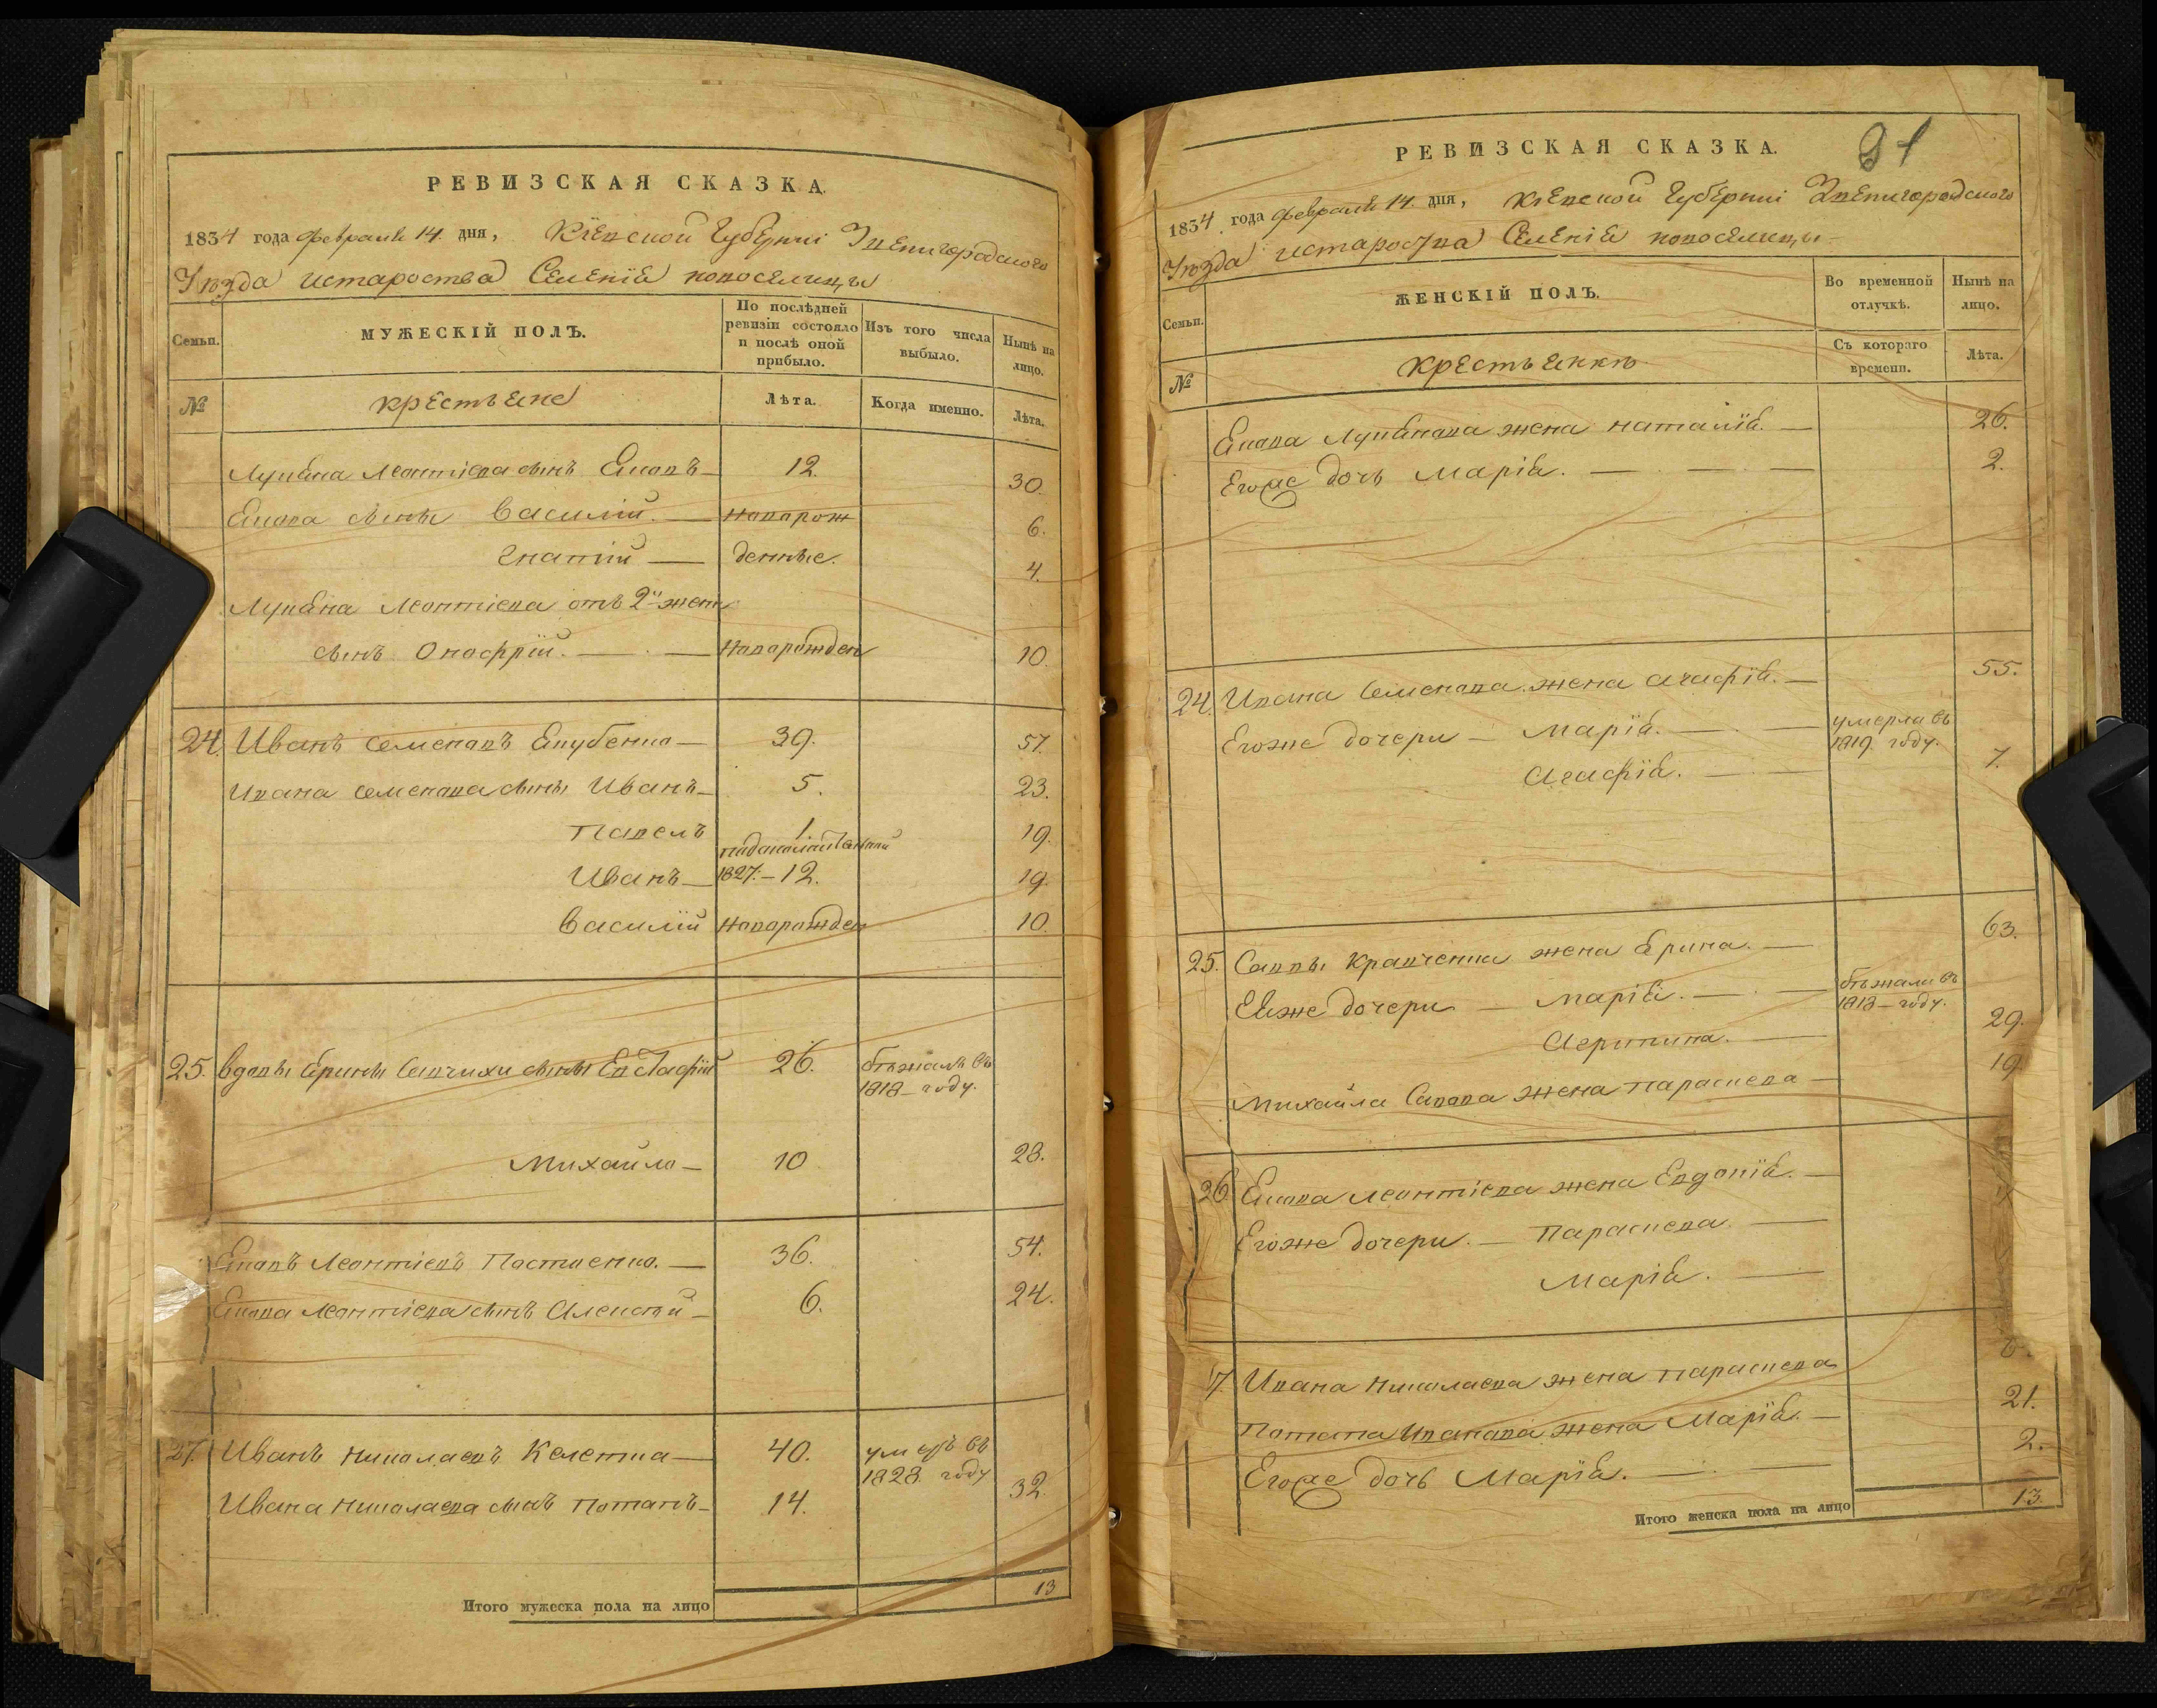 РЕВИЗСКАЯ СКАЗКА.
1834 года февраля 14. дня, Кіевской Губерніи Звенигородского
Уѣзда истароства Селенія новоселицы
Семьи.
МУЖЕСКІЙ ПОЛЪ.
По послѣдней ревизіи состояло и послѣ оной прибыло.
Изъ того числа выбыло.
Нынѣ на лицо.
№
крестьяне
Лѣта.
Когда именно.
Лѣта.
Лукьяна Леонтіева сынъ Яковъ 12. 30.
Якова сыны Василій. новорож 6.
Гнатій денные. 4.
Лукьяна Леонтіева отъ 2й жены
сынъ Онофрій. новорожден 10.
24. Иванъ Семеновъ Якубенко 39. 57.
Ивана Семенова сыны Иванъ 5. 23.
Павелъ 1. 19.
Иванъ 1827.-12. 19.
Василій новорожден 10.
25. вдовы Ярины Савчихи сыны Евстафій 26. бѣжалъ въ 1818 году.
Михайло 10 28.
Яковъ Леонтіевъ Костюенко. 36. 54.
Якова Леонтіева сынъ Алексѣй 6. 24.
27. Иванъ Николаевъ Келетка 40. умеръ въ 1828. году
Ивана Николаева сынъ Потапъ 14. 32.
Итого мужеска пола на лицо 13
РЕВИЗСКАЯ СКАЗКА.
1834 года февраля 14. дня, Кіевской Губерніи Звенигородского
Уѣзда истароства Селенія новоселицы
Семьи.
ЖЕНСКІЙ ПОЛЪ.
Во временной отлучкѣ.
Нынѣ на лицо.
№
крестьянки
Съ котораго времени.
Лѣта.
Якова Лукьянова жена наталія. 26.
Егоже дочь Марія. 2.
24. Ивана Семенова жена Агафія. 55.
Егоже дочери Марія. умерла въ 1819. году.
Агафія. 7.
25. Саввы Кравченка жена Ярина. 63.
Еяже дочери Марія. бѣжала въ 1818 году.
Агрипина. 29.
Михайла Савова жена Параскева 19.
26. Якова Леонтіева жена Евдокія.
Егоже дочери. Параскева.
Марія.
7. Ивана Николаева жена Параскева 6
Потапа Иванова жена Марія. 21.
Егоже дочь Марія. 2.
Итого женска пола на лицо 13.